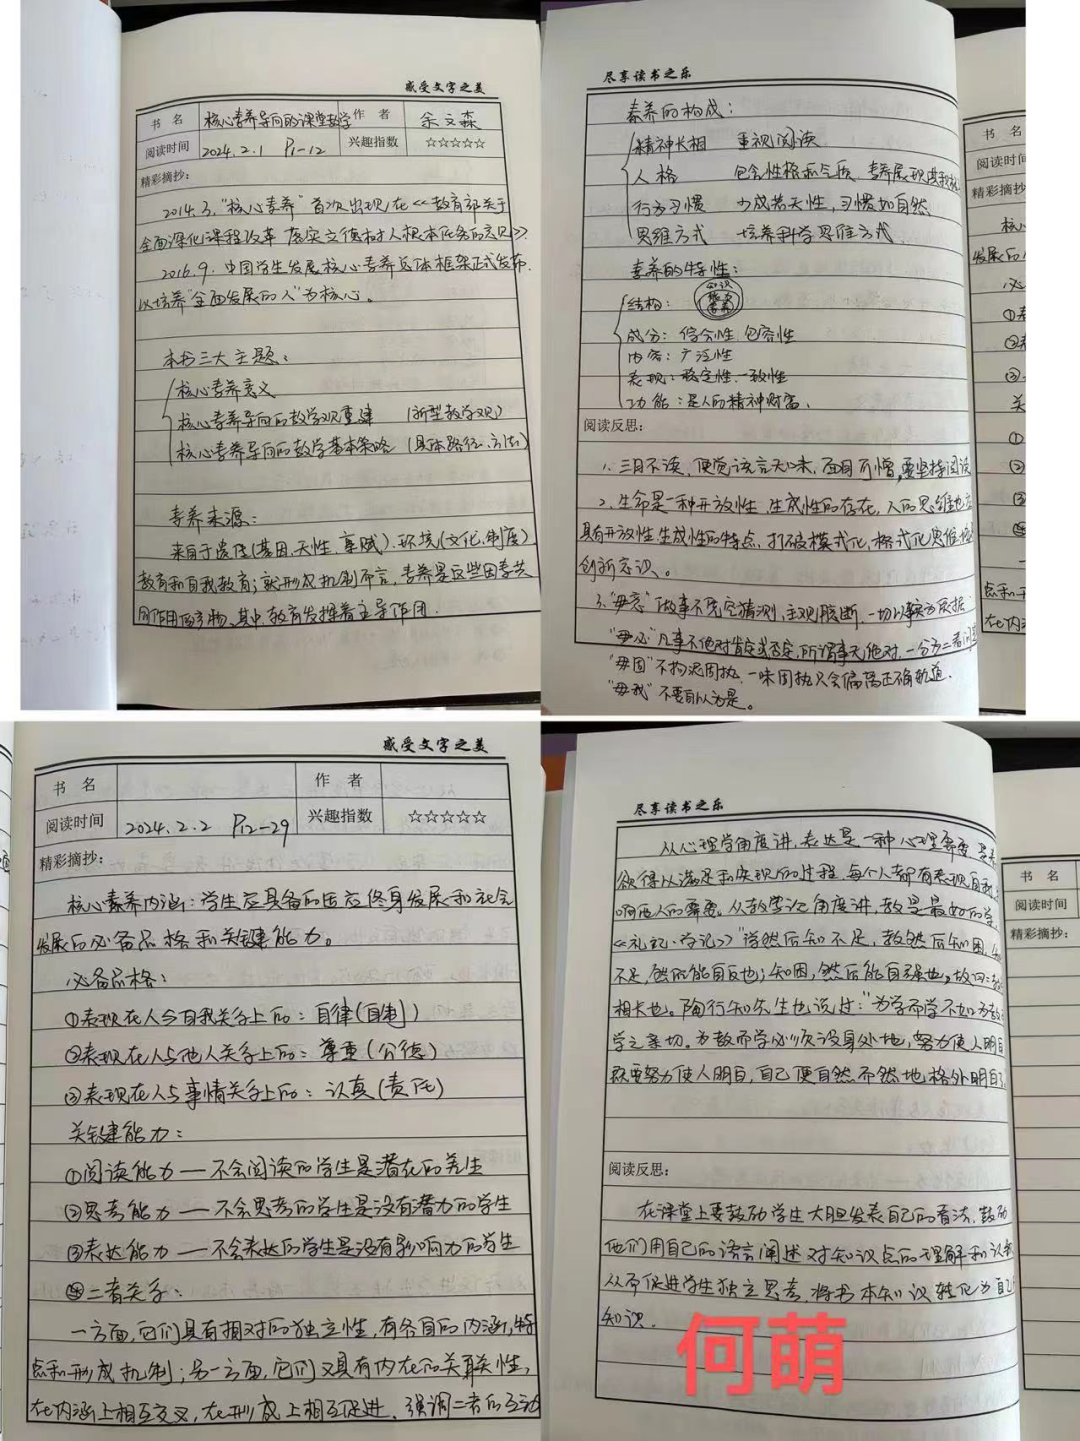 感受文字之美
书 名 核心素养导向的课堂教学 作 者 余文森
阅读时间 2024.2.1 P1-12 兴趣指数 ☆☆☆☆☆
精彩摘抄：
2014.3.“核心素养”首次出现在《教育部关于
全面深化课程改革 落实立德树人根本任务的意见》
2016.9.中国学生发展核心素养总体框架正式发布.
以培养“全面发展的人”为核心。
本书三大主题：
核心素养意义
核心素养导向的教学观重建 （新型教学观）
核心素养导向的教学基本策略（具体路径、方法）
素养来源：
来自于遗传(基因、天性、禀赋)、环境(文化、制度)
教育和自我教育；就形成机制而言，素养是这些因素共
同作用的产物、其中，教育发挥着主导作用.
尽享读书之乐
素养的构成：
精神长相 重视阅读
人格 包含性格和气质、素养展现
行为习惯 少成若天性，习惯如自然
思维方式 培养科学思维方式.
素养的特性：
结构： 知识
成分：综合性、包容性
内容：广泛性
表现：稳定性、一致性
功能：是人的精神财富.
阅读反思：
1.三日不读，便觉该言无味，面目可憎，要坚持阅读
2.生命是一种开放性、生成性的存在，人的思维也应
具有开放性生成性的特点，打破模式化，格式化思维
创新意识。
3.“毋意”做事不凭空猜测，主观臆断.一切以事实为依据
“毋必”凡事不绝对肯定或否定，所谓事无绝对.一分为二看问
“毋固”不拘泥固执.一味固执只会偏离正确轨道.
“毋我”不要自以为是。
书 名
阅读时间
精彩摘抄
感受文字之美
书 名 作 者
阅读时间 2024.2.2 P12-29 兴趣指数 ☆☆☆☆☆
精彩摘抄：
核心素养内涵：学生应具备的适应终身发展和社会
发展的必备品格和关键能力。
必备品格：
①表现在人与自我关系上的：自律(自制)
②表现在人与他人关系上的：尊重(公德)
③表现在人与事情关系上的：认真(责任)
关键能力：
①阅读能力—不会阅读的学生是潜在的差生
②思考能力—不会思考的学生是没有潜力的学生
③表达能力—不会表达的学生是没有影响力的学生
④二者关系：
一方面，它们具有相对的独立性，有各自的内涵，特
点和形成机制；另一方面，它们又具有内在的关联性，
在内涵上相互交叉，在形成上相互促进，强调二者的互动
尽享读书之乐
从心理学角度讲，表达是一种心理需要
欲得以满足和实现的过程，每个人都有表现自我，
响他人的需要。从教学论角度讲，教是最好的学，
《礼记·学记》“学然后知不足，教然后知困，知
不足，然后能自反也；知困，然后能自强也，故曰：教
相长也。陶行知先生也说过：“为学而学不如为教
学之亲切。为教而学必须设身处地，努力使人明白
既要努力使人明白，自己便自然而然地格外明白
阅读反思：
在课堂上要鼓励学生大胆发表自己的看法，鼓励
他们用自己的语言阐述对知识点的理解和认识
从而促进学生独立思考，将书本知识转化为自己
知识.
何萌
书 名
阅读时间
精彩摘抄：